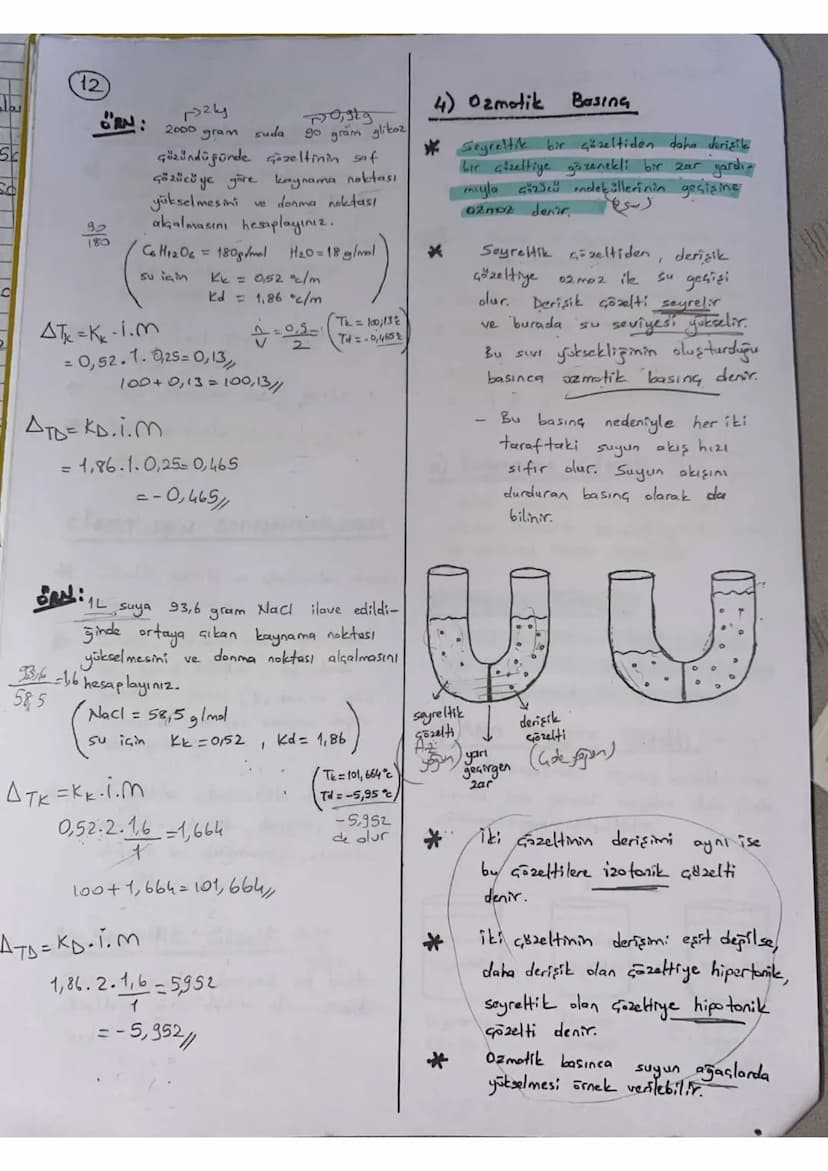 12
ÖRN:
→2kg →0,9kg
2000 gram suda 90 gram glikoz
çözündüğünde çözeltinin saf
çözücüye göre kaynama noktası
yükselmesini ve donma noktası
alçalmasını hesaplayınız.
90/180
C6H12O6 = 180g/mol H2O = 18 g/mol
su için Kk = 0,52 °c/m
Kd = 1,86 °c/m
ΔTk = Kk . i . m
n/V = 0,5/2
Tk = 100,13°c
Td = -0,465°c
= 0,52 . 1 . 0,25 = 0,13
100 + 0,13 = 100,13
ΔTD = KD . i . m
= 1,86 . 1 . 0,25 = 0,465
= -0,465
ÖRN: 1L suya 93,6 gram NaCl ilave edildi-
ğinde ortaya çıkan kaynama noktası
yükselmesini ve donma noktası alçalmasını
hesaplayınız.
93,6/58,5 = 1,6
NaCl = 58,5 g/mol
su için Kk = 0,52 , Kd = 1,86
ΔTK = KK . i . m
Tk = 101,664°c
Td = -5,95°c
-5,952
de olur
0,52 . 2 . 1,6/1 = 1,664
100 + 1,664 = 101,664
ΔTD = KD . i . m
1,86 . 2 . 1,6/1 = 5952
= -5,952
4) Ozmotik Basınç
* Seyreltik bir çözeltiden daha derişik
bir çözeltiye gözenekli bir zar yardı-
mıyla çözücü moleküllerinin geçişine
ozmoz denir. (su)
* Seyreltik çözeltiden, derişik
çözeltiye ozmoz ile su geçişi
olur. Derişik çözelti seyrelir
ve burada su seviyesi yükselir.
Bu sıvı yüksekliğinin oluşturduğu
basınca ozmotik basınç denir.
- Bu basınç nedeniyle her iki
taraftaki suyun akış hızı
sıfır olur. Suyun akışını
durduran basınç olarak da
bilinir.
seyreltik
çözelti
(Az
yoğun)
yarı
geçirgen
zar
derişik
çözelti
(Çok yoğun)
* İki çözeltinin derişimi aynı ise
bu çözeltilere izotonik çözelti
denir.
* İki çözeltinin derişimi eşit değilse,
daha derişik olan çözeltiye hipertonik,
seyreltik olan çözeltiye hipotonik
çözelti denir.
* Ozmotik basınca suyun ağaçlarda
yükselmesi örnek verilebilir.